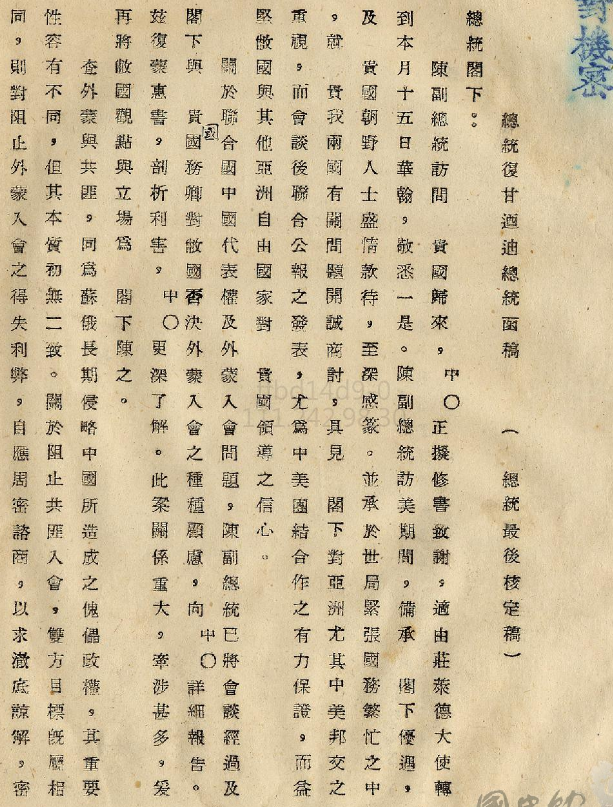 對機密
總統復甘迺迪總統函稿　（總統最後核定稿）
總統閣下：
陳副總統訪問　貴國歸來，中〇正擬修書致謝，適由莊萊德大使轉
到本月十五日華翰，敬悉一是。陳副總統訪美期間，備承　閣下優遇，
及　貴國朝野人士盛情款待，至深感篆。並承於世局緊張國務繁忙之中
，就　貴我兩國有關問題開誠商討，具見　閣下對亞洲尤其中美邦交之
重視，而會談後聯合公報之發表，尤爲中美團結合作之有力保證，而益
堅敝國與其他亞洲自由國家對　貴國領導之信心。
關於聯合國中國代表權及外蒙入會問題，陳副總統已將會談經過及
閣下與　貴國國務卿對敝國否決外蒙入會之種種顧慮，向　中〇詳細報告。
茲復蒙惠書，剖析利害，中〇更深了解。此案關係重大，牽涉甚多，爰
再將敝國觀點與立場爲　閣下陳之。
查外蒙與共匪，同爲蘇俄長期侵略中國所造成之傀儡政權，其重要
性容有不同，但其本質初無二致。關於阻止共匪入會，雙方目標既屬相
同，則對阻止外蒙入會之得失利弊，自應周密諮商，以求澈底諒解，密